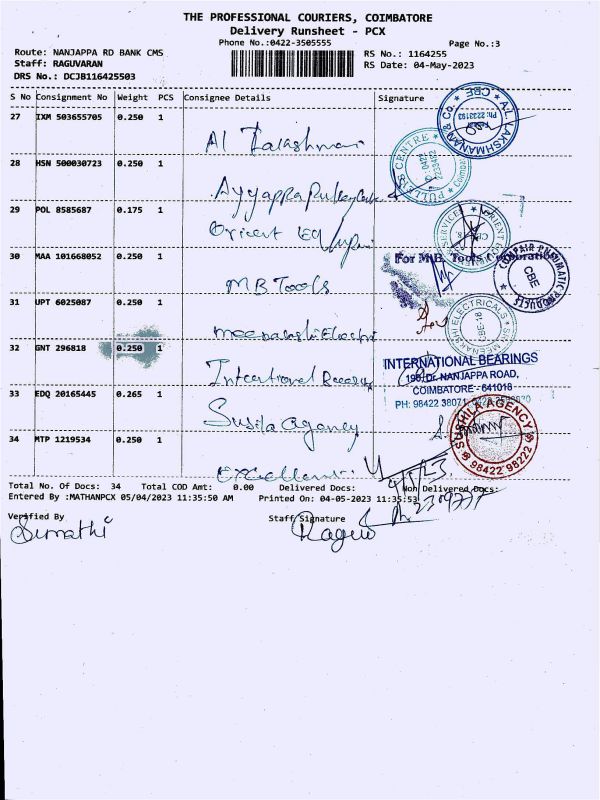 THE PROFESSIONAL COURIERS, COIMBATORE
Delivery Runsheet - PCX
Phone No.:0422-3505555
Page No.:3
Route: NANJAPPA RD BANK CMS
RS No.: 1164255
Staff: RAGUVARAN
RS Date: 04-May-2023
DRS No.: DCJB116425503
S No Consignment No Weight PCS Consignee Details Signature
27 IXM 503655705 0.250 1
A.L. LAKSHMANAN & Co. CBE
Ph: 2233193
28 HSN 500030723 0.250 1
Ayyappa Pulley Centre
PULLEYS CENTRE
29 POL 8585687 0.175 1
Orient Equip
30 MAA 101668052 0.250 1
For M.B. Tools Corporation
MB Tools
COMPAIR PNUMATIC PRODUCTS
CBE
31 UPT 6025087 0.250 1
Meenakshi Electri
ELECTRICALS
CBE-18
32 GNT 296818 0.250 1
INTERNATIONAL BEARINGS
196, Dr. NANJAPPA ROAD,
COIMBATORE - 641018
PH: 98422 38071
33 EDQ 20165445 0.265 1
Susila agency
SUSHILA AGENCY
98422 98222
34 MTP 1219534 0.250 1
Total No. Of Docs: 34 Total COD Amt: 0.00 Delivered Docs: Non Delivered Docs:
Entered By :MATHANPCX 05/04/2023 11:35:50 AM Printed On: 04-05-2023 11:35:53
Verified By
Staff Signature
Sumathi
Ragu